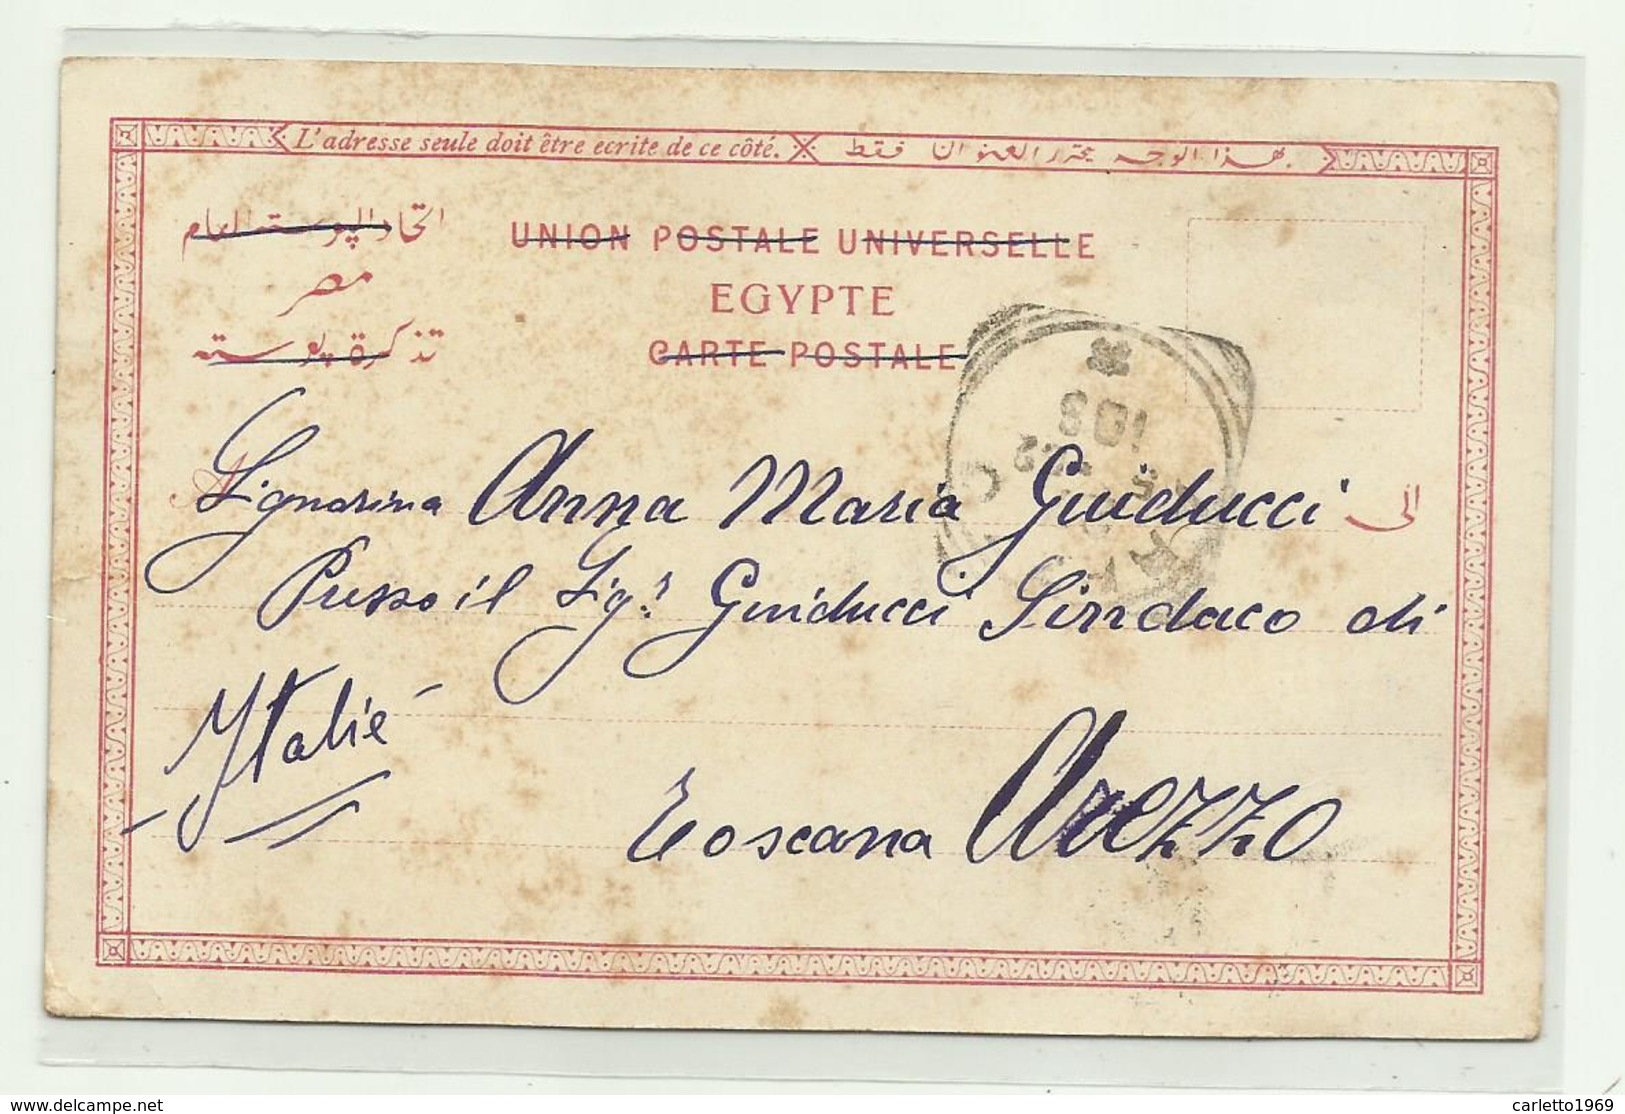 L'adresse seule doit être ecrite de ce côté. هذا الوجه يحرر العنوان فقط.
اتحاد البوسته العام
UNION POSTALE UNIVERSELLE
مصر
EGYPTE
تذكرة بوسته
CARTE POSTALE
Signorina Anna Maria Guiducci الى
Presso il Sigr. Guiducci Sindaco di
Italie
Toscana Arezzo
www.delcampe.net
carletto1969